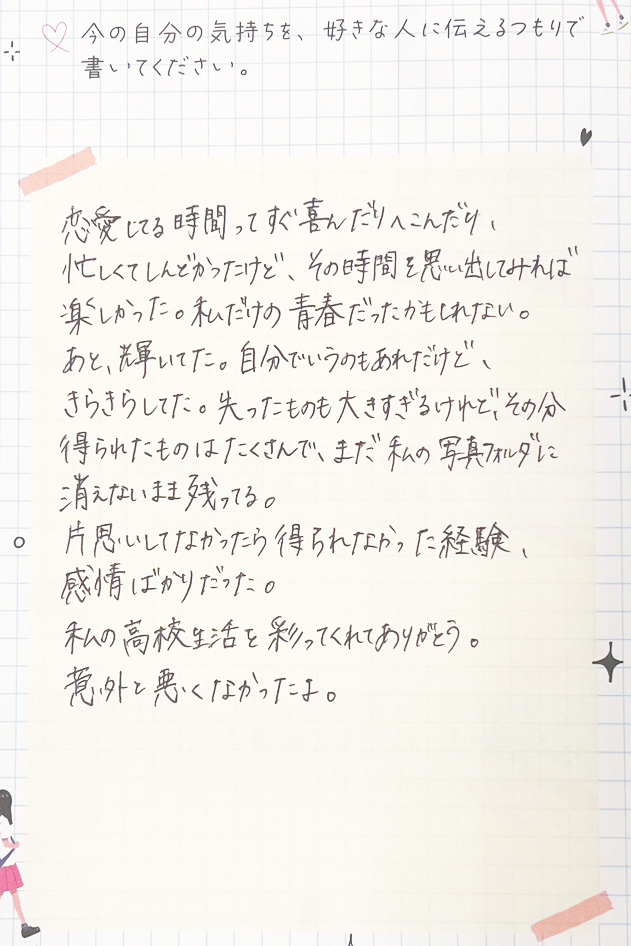 今の自分の気持ちを、好きな人に伝えるつもりで
書いてください。
恋愛してる時間ってすぐ喜んだりへこんだり、
忙しくてしんどかったけど、その時間を思い出してみれば
楽しかった。私だけの青春だったかもしれない。
あと、輝いてた。自分でいうのもあれだけど、
きらきらしてた。失ったものも大きすぎるけれど、その分
得られたものはたくさんで、まだ私の写真フォルダに
消えないまま残ってる。
片思いしてなかったら得られなかった経験、
感情ばかりだった。
私の高校生活を彩ってくれてありがとう。
意外と悪くなかったよ。